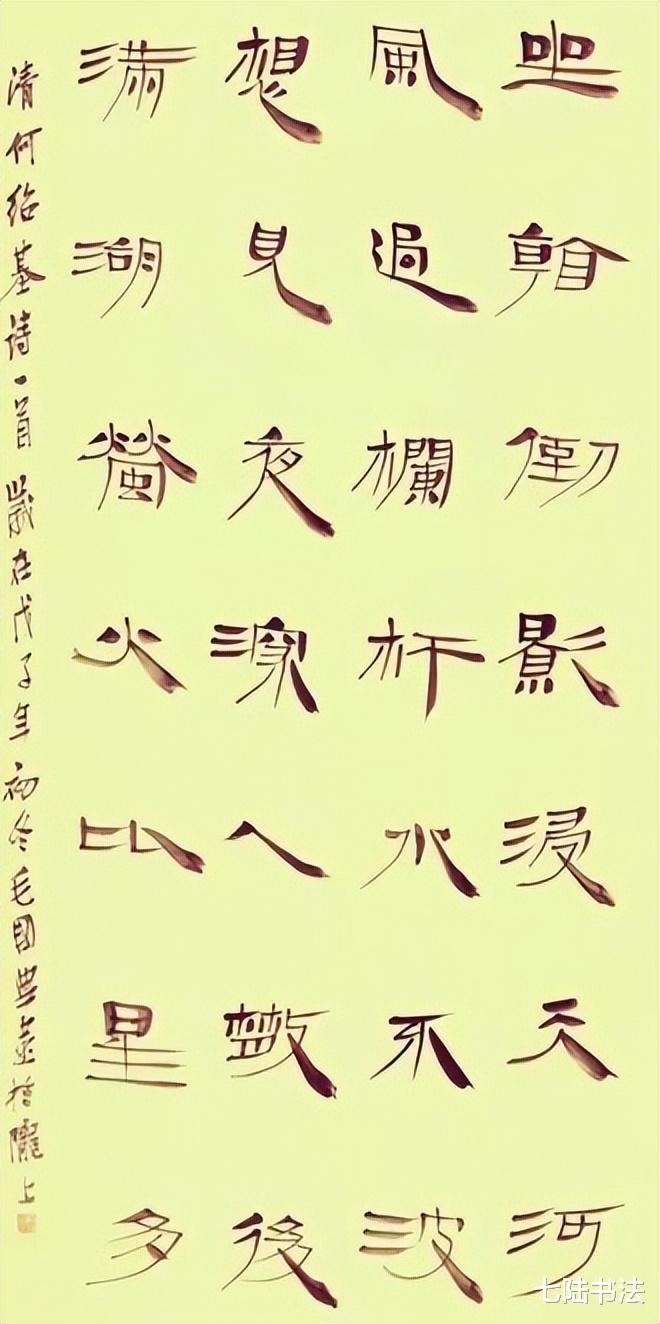 坐看倒影浸天河
風過欄杆水不波
想見夜深人散後
滿湖螢火比星多
清何绍基诗一首歲在戊子年初冬毛國典書於隴上
七陆书法